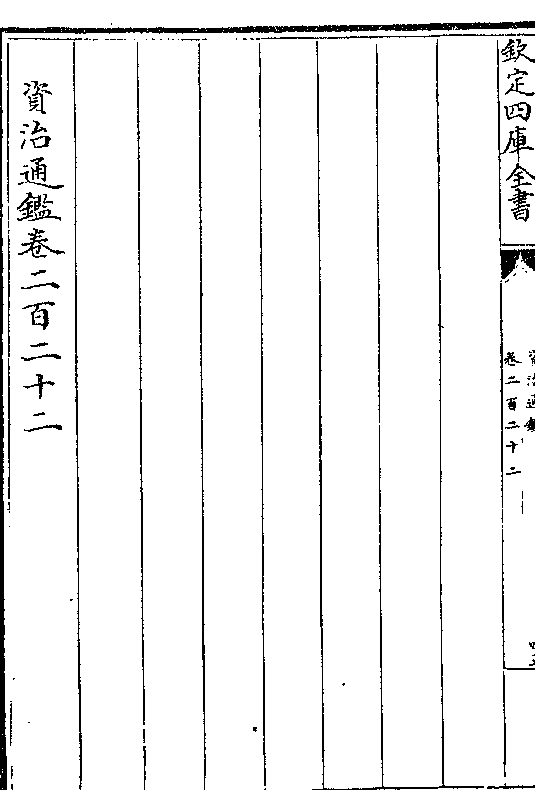 欽定四庫全書
資治通鑑
卷二百二十二
資治通鑑卷二百二十二